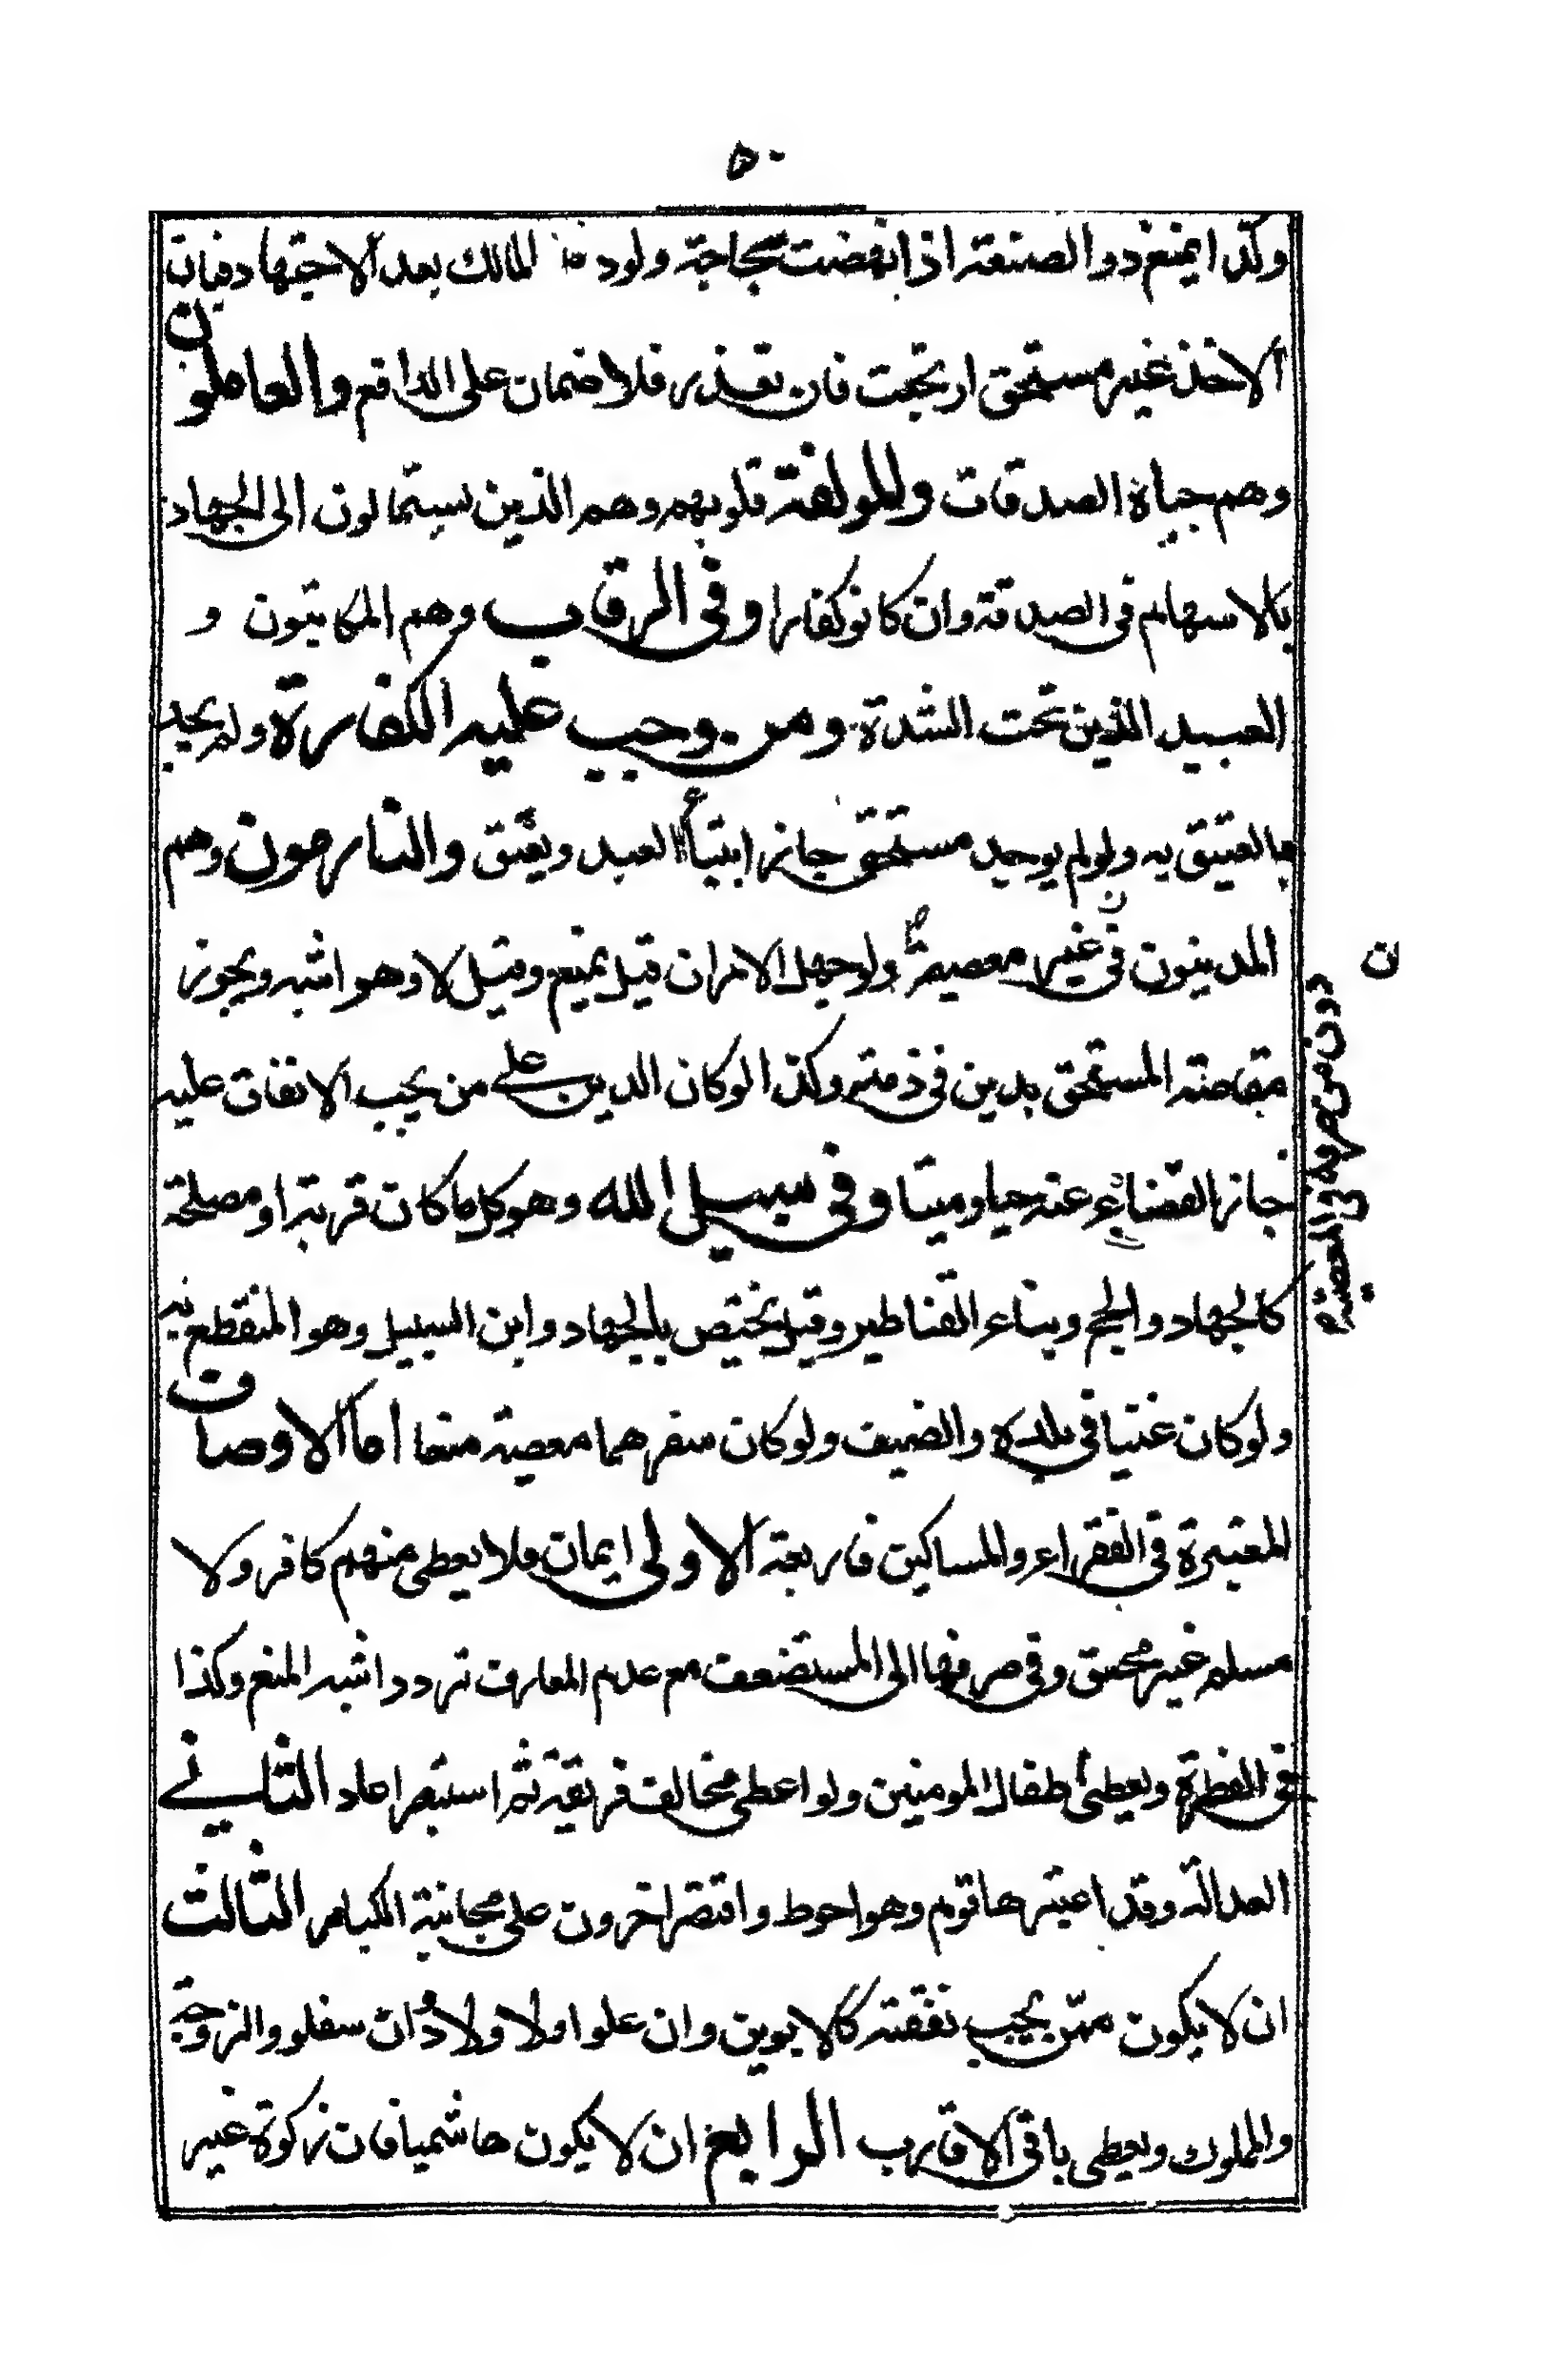 ٥٠
وكذا يمنع ذو الصنعة اذا نهضت بحاجته ولو دفع المالك بعد الاجتهاد فبان
الاخذ غير مستحق ارتجعت فان تعذر فلا ضمان على الدافع والعاملون
وهم جباة الصدقات والمولفة قلوبهم وهم الذين يستمالون الى الجهاد
بالاسهام فى الصدقة وان كانو كفارا وفى الرقاب وهم المكاتبون و
العبيد الذين تحت الشدة ومن وجب عليه الكفارة ولم يجد
ما لعتيق به ولو لم يوجد مستحق جاز ابتياع العبد ويعتق والغارمون وهم
المدينون فى غير معصية ولو جهل الامران قيل يمنع وقيل لا وهو اشبه ويجوز
مقاصة المستحق بدين فى ذمته وكذا لو كان الدين على من يجب الانفاق عليه
جاز القضاء عنه حيا وميتا وفى سبيل الله وهو كل ما كان قربة او مصلحة
كالجهاد والحج وبناء القناطير وقيل يختص بالجهاد وابن السبيل وهو المنقطع به
ولو كان غنيا فى بلده والضيف ولو كان سفرهما معصية منعا اما الاوصاف
المعتبرة فى الفقراء والمساكين فاربعة الاولى ايمان فلا يعطى منهم كافر ولا
مسلم غير محق وفى صرفها الى المستضعف مع عدم المعارف تردد اشبه المنع وكذا
فى الفطرة ويعطى اطفال المومنين ولو اعطى مخالف فريقه ثم استبصر اعاد الثانى
العدالة وقد اعتبرها قوم وهو احوط واقتصر اخرون على مجانبة الكباير الثالث
ان لا يكون ممن يجب نفقته كالابوين وان علوا ولاولاد وان سفلو والزوجة
والمملوك ويعطى باقى الاقارب الرابع ان لا يكون هاشميا فان زكوة غير
ن
دون من صرفه فى المعصية